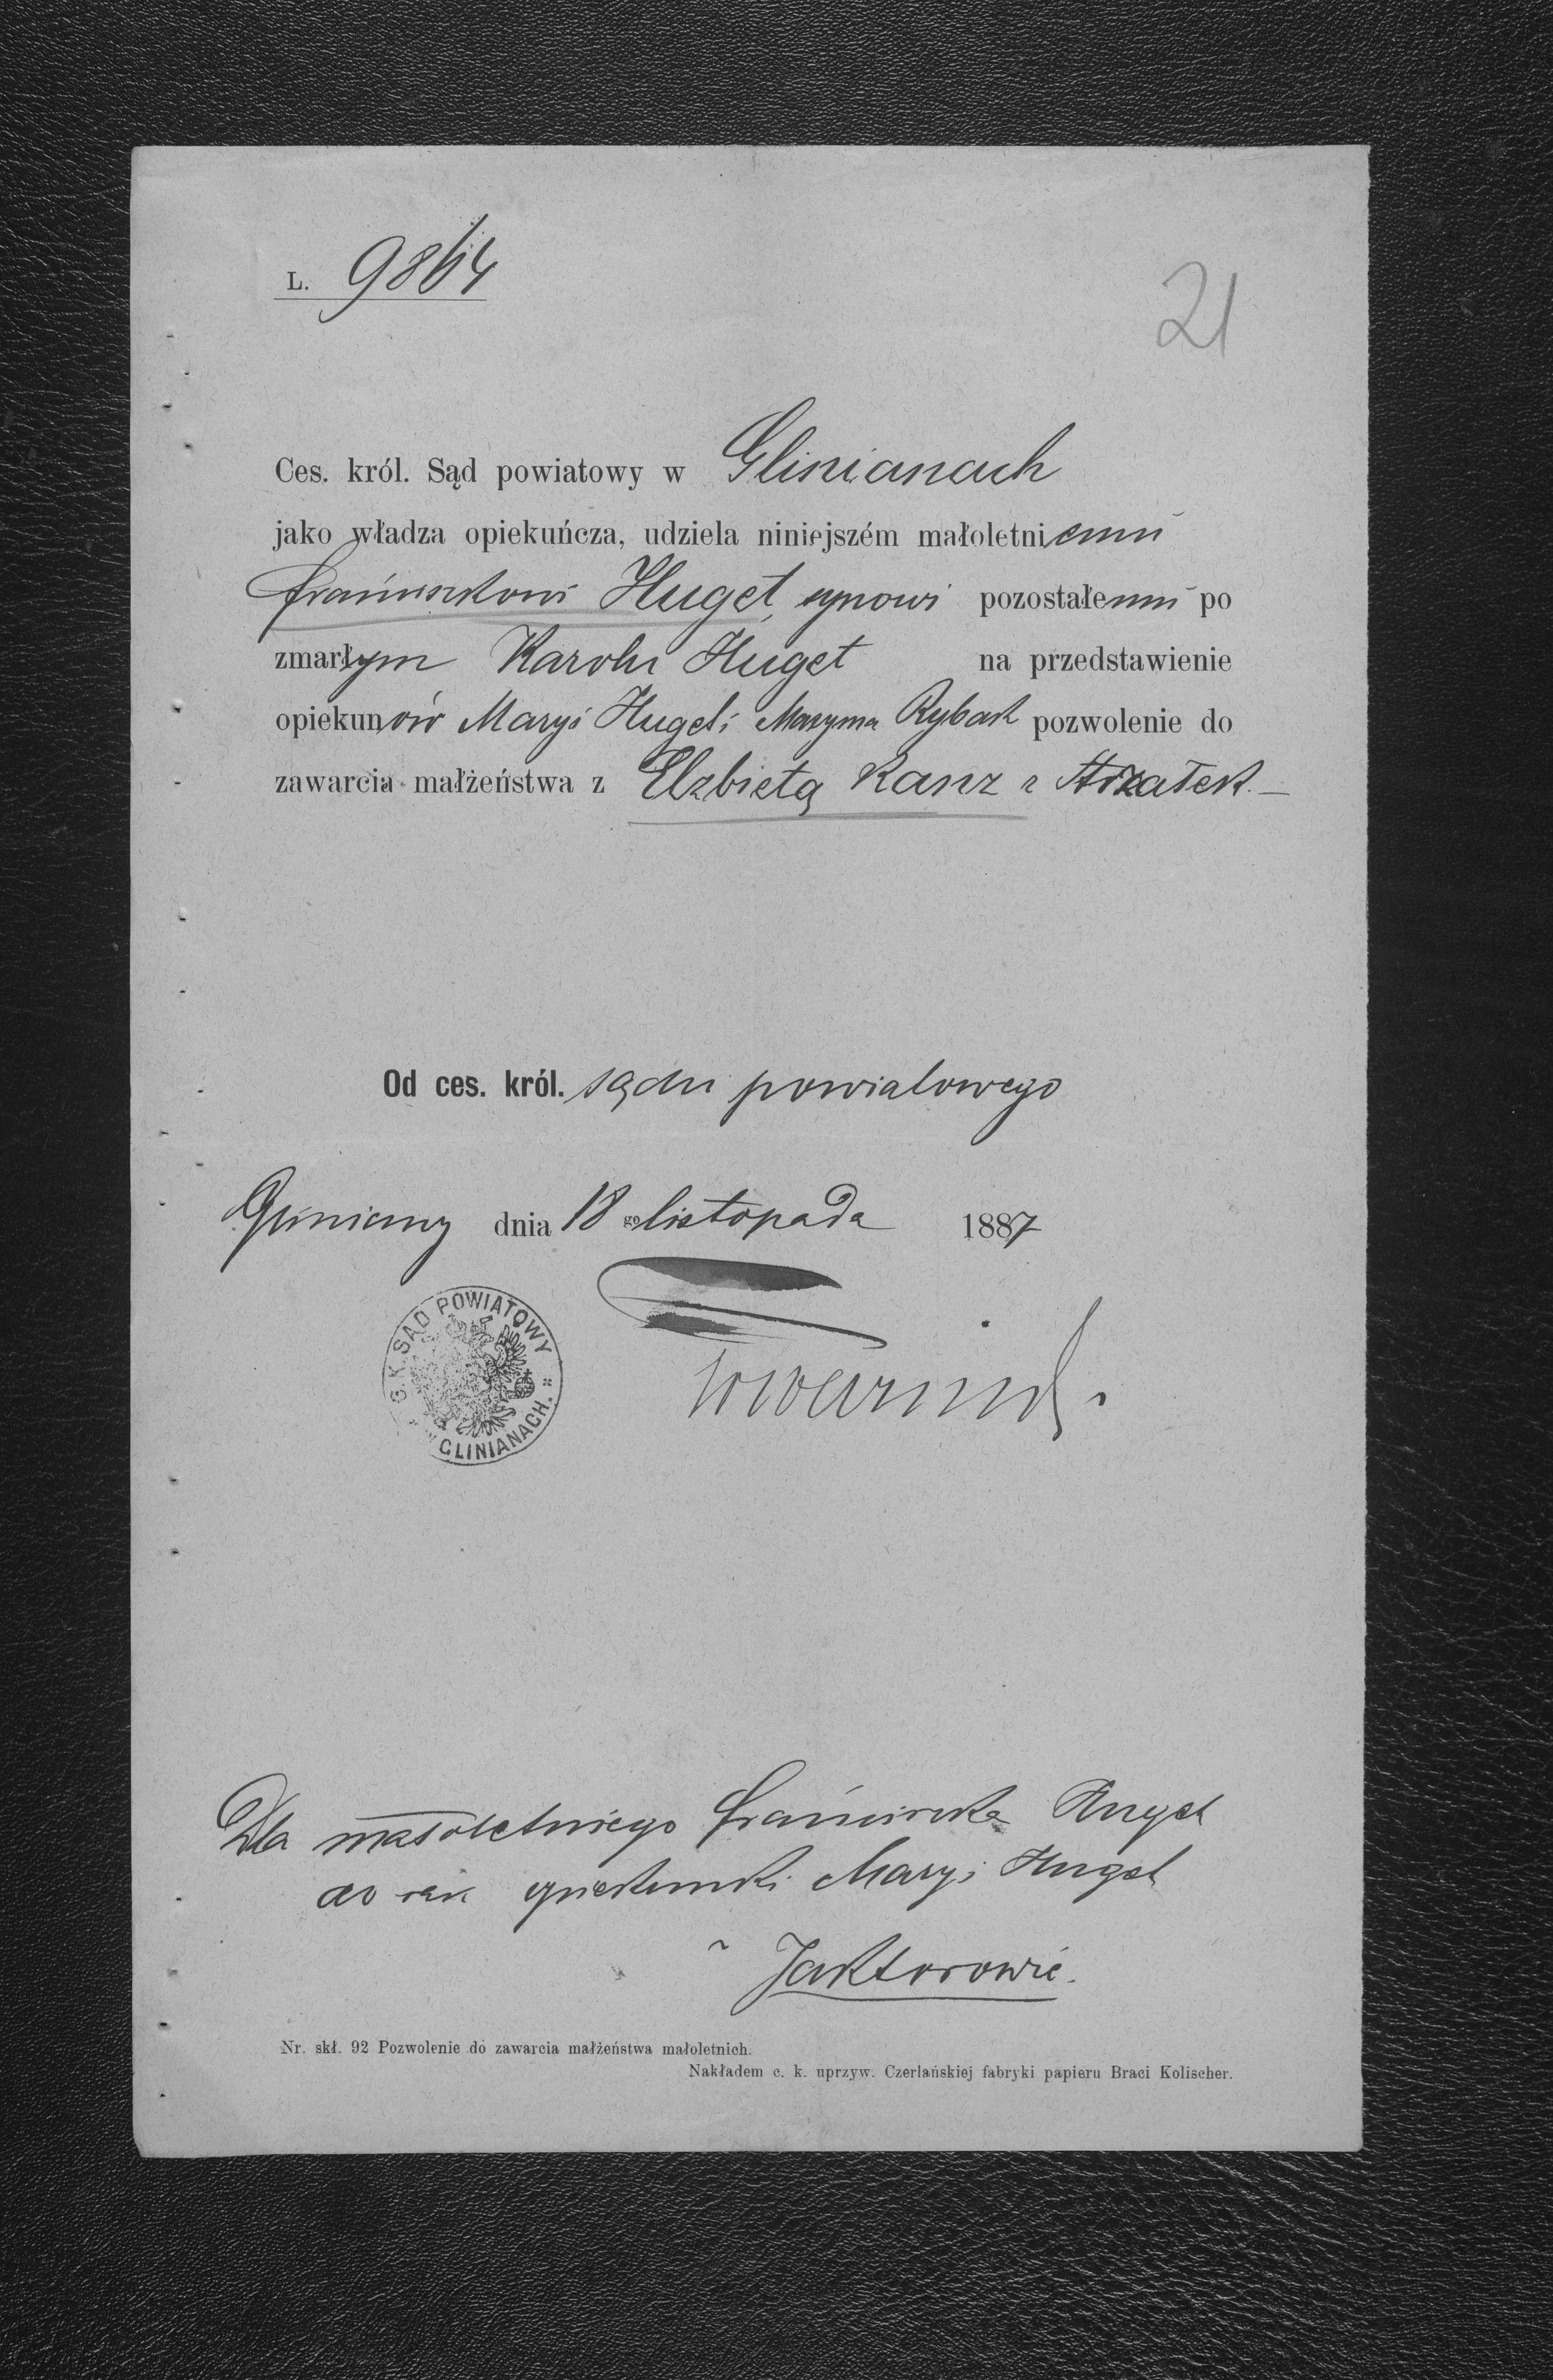 L. 9864
21
Ces. król. Sąd powiatowy w Glinianach
jako władza opiekuńcza, udziela niniejszém małoletniemu
Franciszkowi Huget, synowi pozostałemu po
zmarłym Karolu Huget na przedstawienie
opiekunów Maryi Huget i Maryma Rybak pozwolenie do
zawarcia małżeństwa z Elzbietą Kanz z
Od ces. król. sądu powiatowego
Gliniany dnia 18 go listopada 1887
C. K. SĄD POWIATOWY
W GLINIANACH.
Dla małoletniego Franciszka Huget
do rąk opiekunki Maryi Huget
w Jaktorowie.
Nr. skł. 92 Pozwolenie do zawarcia małżeństwa małoletnich.
Nakładem c. k. uprzyw. Czerlańskiej fabryki papieru Braci Kolischer.